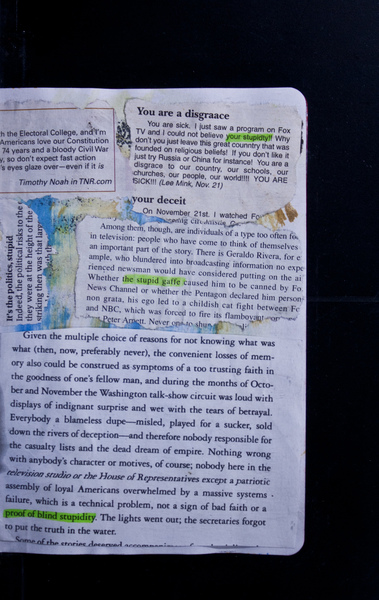 You are a disgraace
You are sick. I just saw a program on Fox
TV and I could not believe your stupidty!! Why
don't you just leave this great counntry that was
founded on religious beliefs! If you don't like it
just try Russia or China for instance! You are a
disgrace to our country, our schools, our
churches, our people, our world!!!! YOU ARE
SICK!!! (Lee Mink, Nov. 21)
h the Electoral College, and I'm
Americans love our Constitution
74 years and a bloody Civil War
y, so don't expect fast action
's eyes glaze over—even if it is
Timothy Noah in TNR.com
your deceit
On November 21st, I watched Fo
It's the politics, stupid
Indeed, the political risks to the
they were at the height of the
striking then was that
Among them, though, are individuals of a type too often fo
in television: people who have come to think of themselves
an important part of the story. There is Geraldo Rivera, for e
ample, who blundered into broadcasting information no expe
rienced newsman would have considered putting on the ai
Whether the stupid gaffe caused him to be canned by Fo
News Channel or whether the Pentagon declared him person
non grata, his ego led to a childish cat fight between Fo
and NBC, which was forced to fire its flamboyant
Peter Arnett. Never one to shun
Given the multiple choice of reasons for not knowing what
what (then, now, preferably never), the convenient losses of mem-
ory also could be construed as symptoms of a too trusting faith in
the goodness of one's fellow man, and during the months of Octo-
ber and November the Washington talk-show circuit was loud with
displays of indignant surprise and wet with the tears of betrayal.
Everybody a blameless dupe—misled, played for a sucker, sold
down the rivers of deception—and therefore nobody responsible for
the casualty lists and the dead dream of empire. Nothing wrong
with anybody's character or motives, of course; nobody here in the
television studio or the House of Representatives except a patriotic
assembly of loyal Americans overwhelmed by a massive systems
failure, which is a technical problem, not a sign of bad faith or a
proof of blind stupidity. The lights went out; the secretaries forgot
to put the truth in the water.
Some of the stories deserved